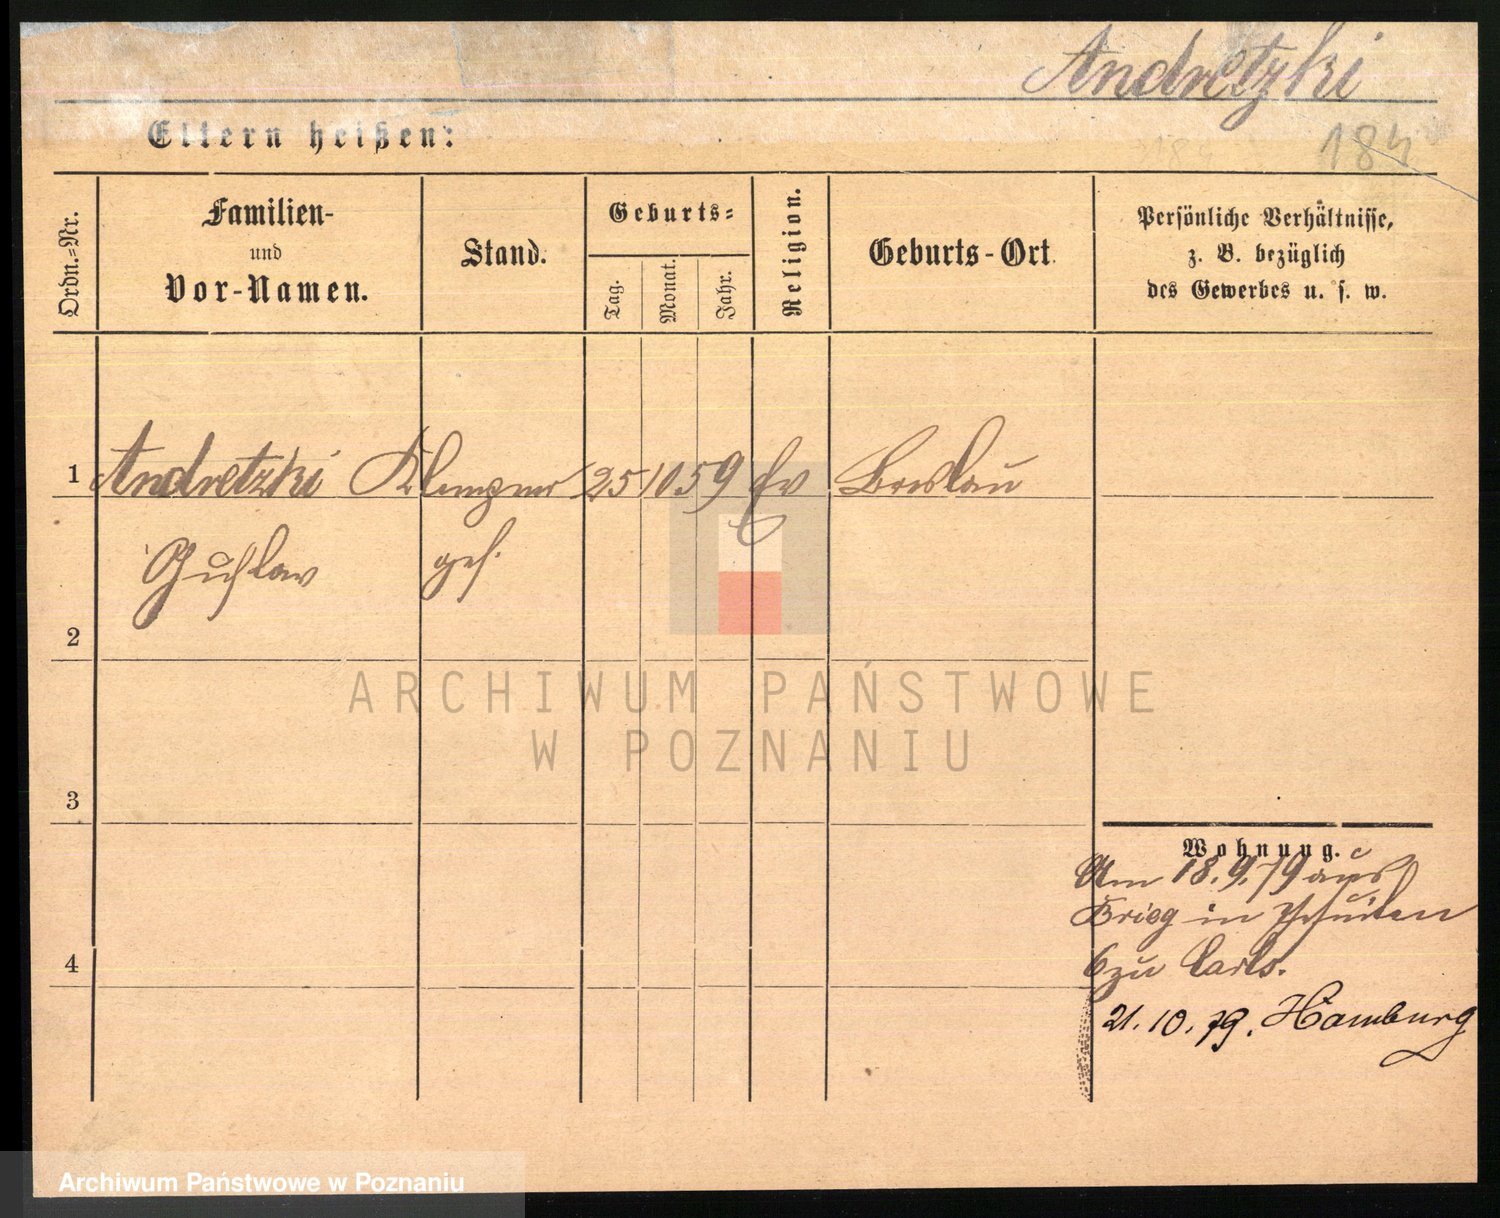 Andretzki
Eltern heißen:
184
Ordn.=Nr.
Familien-
und
Vor-Namen.
Stand.
Geburts=
Tag.
Monat.
Jahr.
Religion.
Geburts-Ort.
Persönliche Verhältnisse,
z. B. bezüglich
des Gewerbes u. s. w.
1 Andretzki Klempner 25 10 59 Ev Breslau
Gustav ges.
2
ARCHIWUM PAŃSTWOWE
W POZNANIU
3
Wohnung.
Am 18.9.79 aus
Brieg in Jesuiten
6 zu Carls.
4
21.10.79. Hamburg
Archiwum Państwowe w Poznaniu